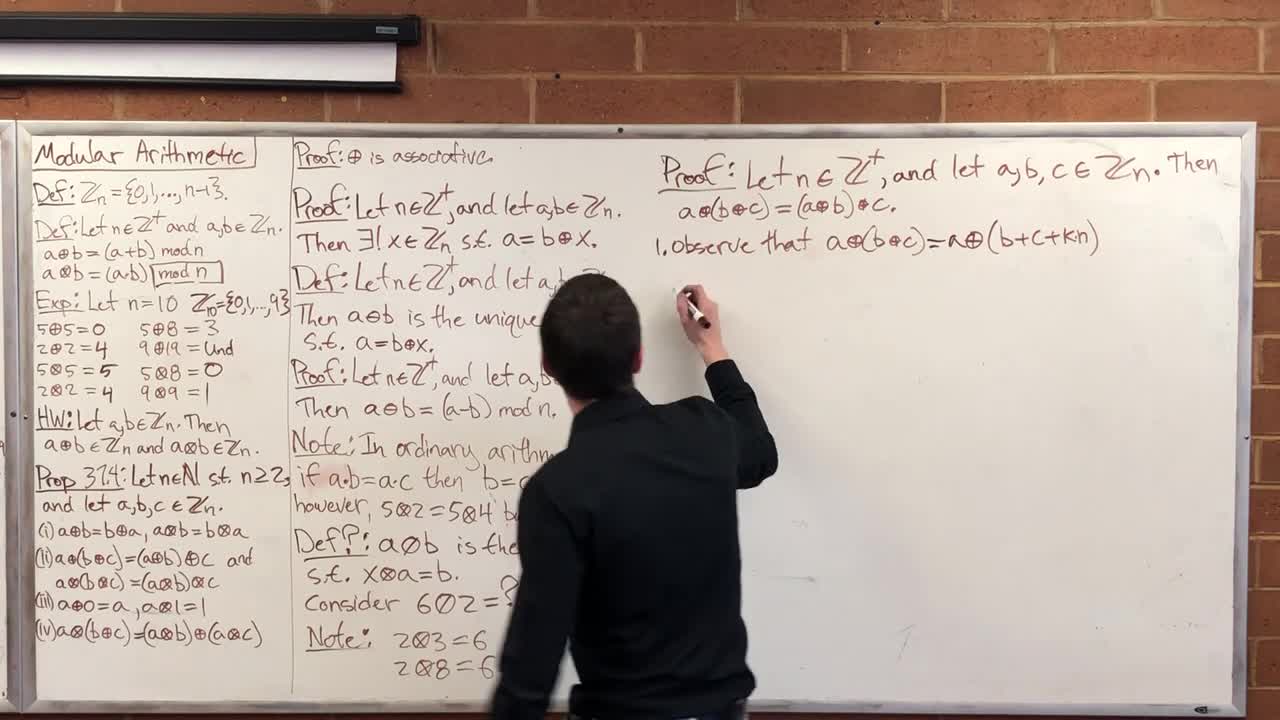 Modular Arithmetic
Def: ℤn = {0,1,...,n-1}.
Def: Let n∈ℤ⁺ and a,b∈ℤn.
a⊕b = (a+b) mod n
a⊗b = (a·b) mod n
Exp: Let n=10 ℤ10={0,1,...,9}
5⊕5=0 5⊕8=3
2⊕2=4 9⊕19=Und
5⊗5=5 5⊗8=0
2⊗2=4 9⊗9=1
HW: Let a,b∈ℤn. Then
a⊕b∈ℤn and a⊗b∈ℤn.
Prop 37.4: Let n∈ℕ s.t. n≥2,
and let a,b,c∈ℤn.
(i) a⊕b=b⊕a, a⊗b=b⊗a
(ii) a⊕(b⊕c)=(a⊕b)⊕c and
a⊗(b⊗c)=(a⊗b)⊗c
(iii) a⊕0=a, a⊗1=1
(iv) a⊗(b⊕c)=(a⊗b)⊕(a⊗c)
Proof: ⊕ is associative.
Proof: Let n∈ℤ⁺, and let a,b∈ℤn.
Then ∃! x∈ℤn s.t. a=b⊕x.
Def: Let n∈ℤ⁺, and let a,b
Then a⊖b is the unique
s.t. a=b⊕x.
Proof: Let n∈ℤ⁺, and let a,b
Then a⊖b=(a-b) mod n.
Note: In ordinary
if a·b=a·c then b=
however, 5⊗2=5⊗4
Def?: a⊘b is the
s.t. x⊗a=b.
Consider 6⊘2=?
Note: 2⊗3=6
2⊗8=6
Proof: Let n∈ℤ⁺, and let a,b,c∈ℤn. Then
a⊕(b⊕c)=(a⊕b)⊕c.
1. Observe that a⊕(b⊕c)=a⊕(b+c+k·n)